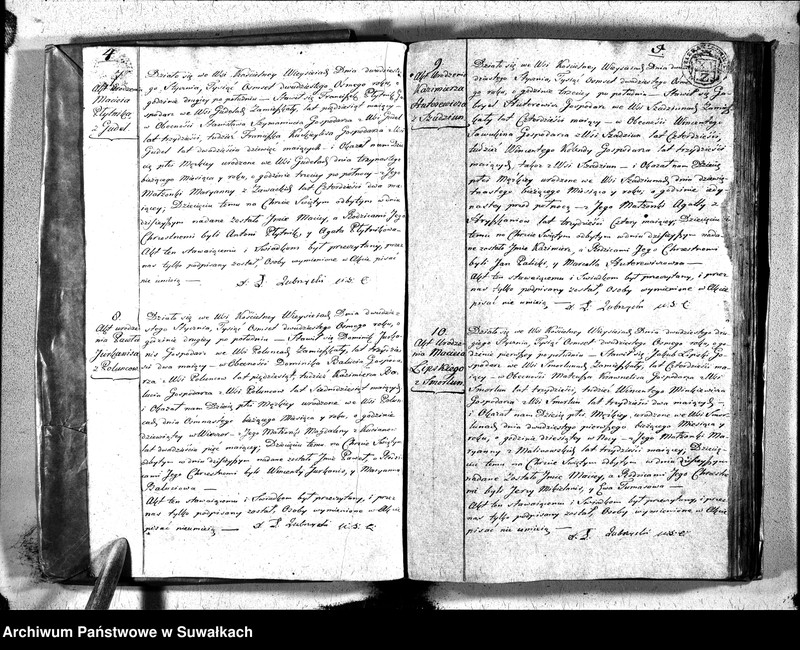 4
7.
Akt Urodzenia
Macieja
Płytnika
z Gudel
Działo się we Wsi Kościelney Wieysieiach Dnia dwudzieste-
go Stycznia, Tysiąc Osmset dwudziestego Osmego roku, o
godzinie drugiey po południu — Stawił się Franciszek Płytnik Go-
spodarz we Wsi Gudelach Zamieszkały, lat pięćdziesiąt maiący
w Obecności Stanisława Szymanisa Gospodarza z Wsi Gudel
lat trzydzieści, tudzież Franciszka Gospodarza z Wsi
Gudel lat dwadzieścia dziewięć maiących — i Okazał nam Dziecię
płci Męzkiey urodzone we Wsi Gudelach dnia trzynastego
bieżącego Miesiąca y roku, o godzinie trzeciey po północy — z Jego
Małżonki Maryanny z lat Czterdzieści dwa ma-
iącey; Dziecięciu temu na Chrzcie Świętym odbytym w dniu
dzisieyszym nadane zostało Jmie Maciey, a Rodzicami Jego
Chrzestnemi byli Antoni Płytnik, y Agata Płytnikowa
Akt ten stawaiącemu i Świadkom był przeczytany, przez
nas tylko podpisany został, Osoby wymienione w Akcie pisać
nie umieią —
X. J. Zubrzycki U.S.C.
8.
Akt urodze-
nia Pawła
Jurkanisa
z Poluncow
Działo się we Wsi Kościelney Wieysieiach Dnia dwudzie-
stego Stycznia, Tysiąc Osmset dwudziestego Osmego roku, o
godzinie drugiey po południu — Stawił się Dominik Jurka-
nis Gospodarz we Wsi Poluncach Zamieszkały, lat trzydzie-
ści dwa maiący — w Obecności Dominika Balucia Gospoda-
rza z Wsi Poluncow lat pięćdziesiąt, tudzież Kazimierza Ba-
lucia Gospodarza z Wsi Poluncow lat Siedmdziesiąt maiących
i Okazał nam Dziecię płci Męzkiey urodzone we Wsi Polun-
cach, dnia Osmnastego bieżącego Miesiąca y roku, o godzinie
dziewiątey w Wieczor — z Jego Małżonki Magdaleny z
lat dwadzieścia pięć maiącey; Dziecięciu temu na Chrzcie Świętym
odbytym w dniu dzisieyszym nadane zostało Jmie Paweł, a Rodzi-
cami Jego Chrzestnemi byli Wincenty Jurkanis, y Maryanna
Baluciowa —
Akt ten stawaiącemu i Świadkom był przeczytany, i przez
nas tylko podpisany został, Osoby wymienione w Akcie
pisać nieumieią — X. J. Zubrzycki U.S.C.
5
9.
Akt Urodzenia
Kazimierza
Autorewicza
z Szadziun
Działo się we Wsi Kościelney Wieysieiach Dnia
Stycznia, Tysiąc Osmset dwudziestego Osmego
roku, o godzinie trzeciey po południu — Stawił się Ga-
bryel Autorewicz Gospodarz we Wsi Szadziunach Zamiesz-
kały lat Czterdzieści maiący — w Obecności Wincentego
Gospodarza z Wsi Szadziun lat Czterdzieści,
tudzież Wincentego Gospodarza lat trzydzieści
maiących, także z Wsi Szadziun — i Okazał nam Dziecię
płci Męzkiey urodzone we Wsi Szadziunach dnia dziewię-
tnastego bieżącego Miesiąca y roku, o godzinie iedy-
nastey przed północą — z Jego Małżonki Agaty z
lat trzydzieści Cztery maiącey; Dziecięciu
temu na Chrzcie Świętym odbytym w dniu dzisieyszym nada-
ne zostało Jmie Kazimierz, a Rodzicami Jego Chrzestnemi
byli Jan y Marcella Autorewiczowa —
Akt ten stawaiącemu i Świadkom był przeczytany, i przez
nas tylko podpisany został, Osoby wymienione w Akcie
pisać nie umieią — X. J. Zubrzycki U.S.C.
10.
Akt Urodze-
nia Macieja
Lipskiego
z Smorlun
Działo się we Wsi Kościelney Wieysieiach Dnia dwudziestego dru-
giego Stycznia, Tysiąc Osmset dwudziestego Osmego roku, o go-
dzinie pierwszey po południu — Stawił się Jakub Lipski Go-
spodarz we Wsi Smorlunach Zamieszkały, lat Czterdzieści ma-
iący — w Obecności Mateusza Gospodarza z Wsi
Smorlun lat trzydzieści, tudzież Wincentego Minkiewicza
Gospodarza z Wsi Smorlun lat trzydzieści dwa maiących —
i Okazał nam Dziecię płci Męzkiey urodzone we Wsi Smor-
lunach dnia dwudziestego pierwszego bieżącego Miesiąca y
roku, o godzinie dziesiątey w Nocy — z Jego Małżonki Ma-
ryanny z Malinowskich lat trzydzieści maiącey, Dziecię-
ciu temu na Chrzcie Świętym odbytym w dniu dzisieyszym
nadane zostało Jmie Maciey, a Rodzicami Jego Chrzestne-
mi byli Jerzy y Ewa Tumasowa —
Akt ten stawaiącemu i Świadkom był przeczytany, i przez
nas tylko podpisany został, Osoby wymienione w Akcie
pisać nie umieią —
X. J. Zubrzycki U.S.C.
Archiwum Państwowe w Suwałkach